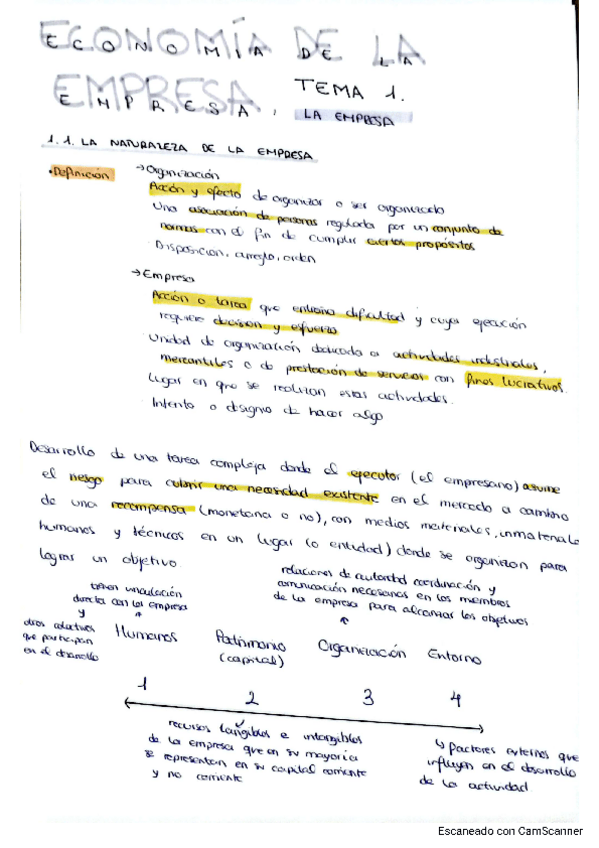 ECONOMÍA DE LA
EMPRESA. TEMA 1.
LA EMPRESA
1.1. LA NATURALEZA DE LA EMPRESA
• Definición → Organización
Acción y efecto de organizar o ser organizado
Una asociación de personas regulada por un conjunto de
normas con el fin de cumplir ciertos propósitos
Disposición, arreglo, orden
→ Empresa
Acción o tarea que entraña dificultad y cuya ejecución
requiere decisión y esfuerzo
Unidad de organización dedicada a actividades industriales,
mercantiles o de prestación de servicios con fines lucrativos.
Lugar en que se realizan estas actividades.
Intento o designio de hacer algo
Desarrollo de una tarea compleja donde el ejecutor (el empresario) asume
el riesgo para cubrir una necesidad existente en el mercado a cambio
de una recompensa (monetaria o no), con medios materiales, inmateriales
humanos y técnicos en un lugar (o entidad) donde se organizan para
lograr un objetivo.
tienen vinculación
directa con la empresa
y
otros colectivos
que participan
en el desarrollo
relaciones de autoridad coordinación y
comunicación necesarias en los miembros
de la empresa para alcanzar los objetivos
Humanos Patrimonio Organización Entorno
(capital)
1 2 3 4
recursos tangibles e intangibles
de la empresa que en su mayoría
se representan en su capital corriente
y no corriente
↳ factores externos que
influyen en el desarrollo
de la actividad.
Escaneado con CamScanner